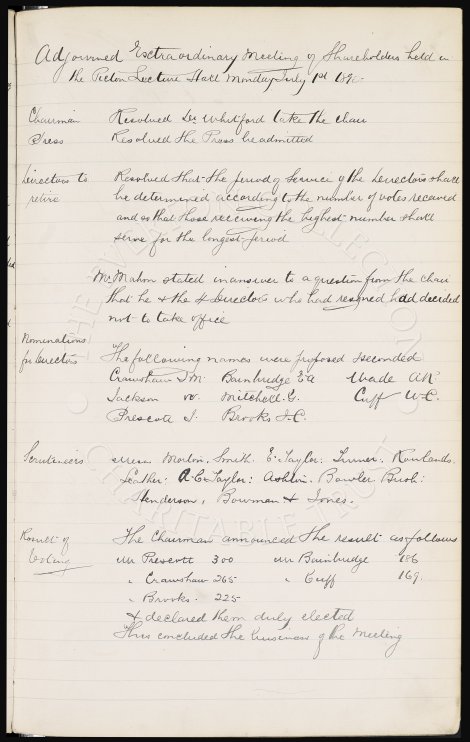 Adjourned Extraordinary Meeting of Shareholders held in
the Picton Lecture Hall Monday July 1st
Chairman Resolved Dr Whitford take the chair
Press Resolved the Press be admitted
Directors to Resolved that the period of Service of the Directors shall
retire be determined according to the number of votes received
and so that those receiving the highest number shall
serve for the longest period
Mr Mahon stated in answer to a question from the chair
that he & the 4 Directors who had resigned had decided
not to take office
Nominations
for Directors The following names were proposed & seconded
Crawshaw T.M. Bainbridge E.A Wade A.R.
Jackson W. Mitchell. G. Cuff W.C.
Prescott J. Brooks J.C.
Scrutineers Messrs Morton, Smith. E. Taylor: Turner. Rowlands.
Leather: A.C. Taylor: Ashlin. Bowler Bush:
Henderson, Bowman & Jones.
Result of The Chairman announced the result as follows
Voting Mr Prescott 300 Mr Bainbridge 186
" Crawshaw 265 " Cuff 169.
" Brooks. 225
& declared them duly elected
This concluded the business of the Meeting
THE EVERTON COLLECTION
CHARITABLE TRUST